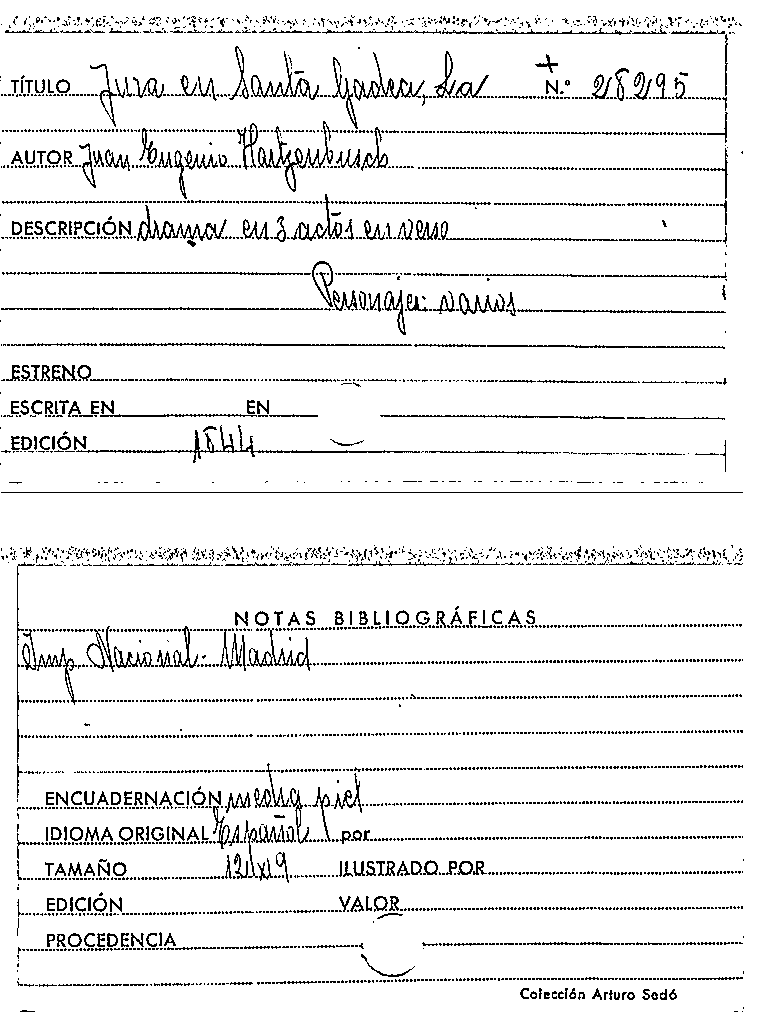 TÍTULO Jura en Santa Gadea, La + N.º 28295
AUTOR Juan Eugenio Hartzenbusch
DESCRIPCIÓN drama en 3 actos en verso
Personajes: varios
ESTRENO
ESCRITA EN EN
EDICIÓN 1844
NOTAS BIBLIOGRÁFICAS
Imp Nacional - Madrid
ENCUADERNACIÓN media piel
IDIOMA ORIGINAL Español por
TAMAÑO 12x19 ILUSTRADO POR
EDICIÓN VALOR
PROCEDENCIA
Colección Arturo Sedó